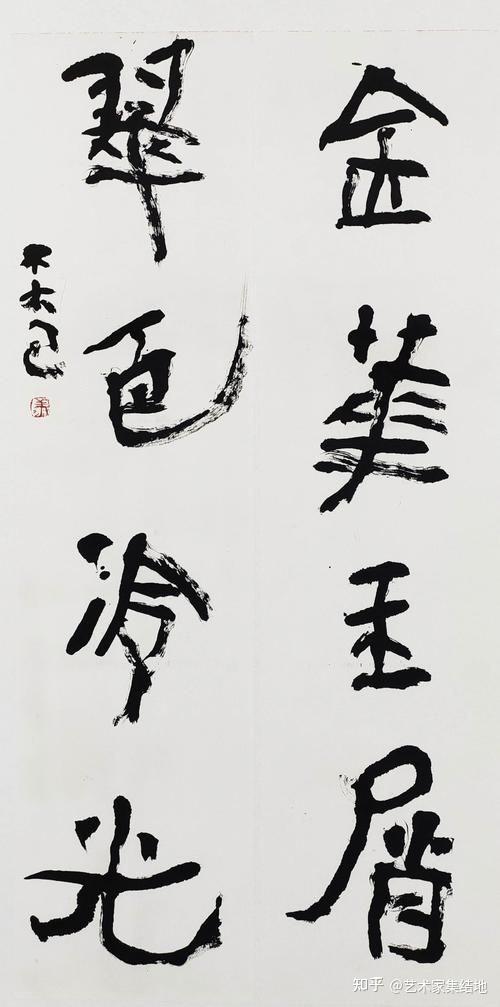 金玉屑
翠色冷光
知乎 @艺术家集结地